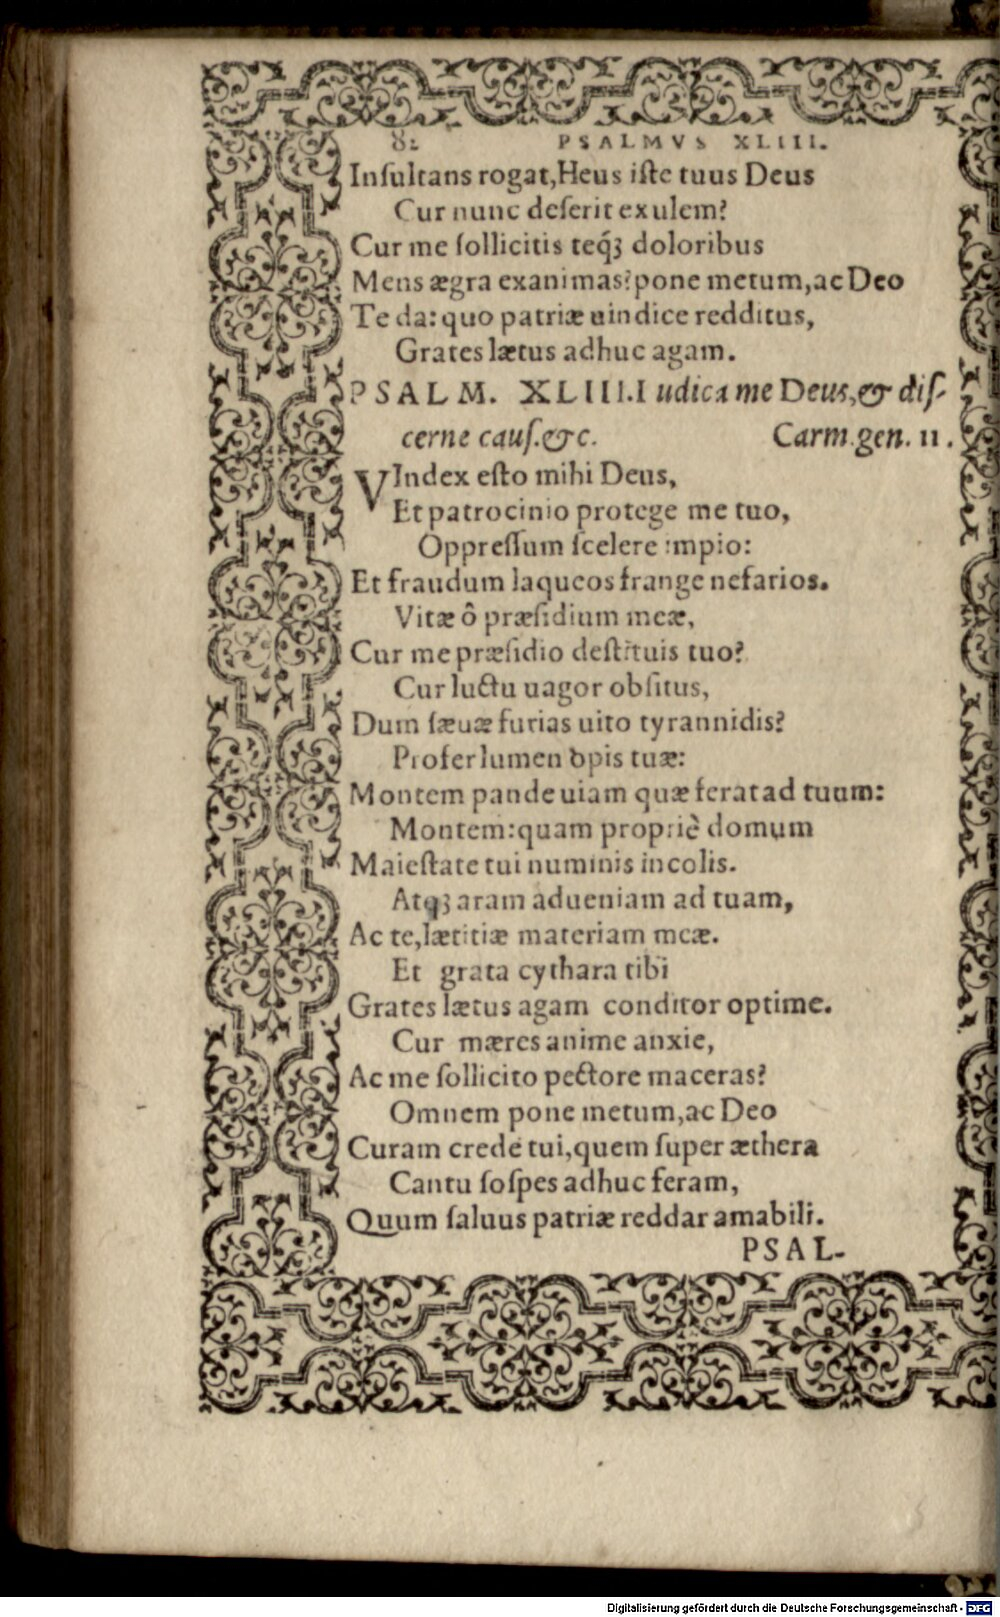 82 PSALMVS XLIII.
Inſultans rogat, Heus iſte tuus Deus
Cur nunc deſerit exulem?
Cur me ſollicitis teq́ꝫ doloribus
Mens ægra exanimas? pone metum, ac Deo
Te da: quo patriæ uindice redditus,
Grates lætus adhuc agam.
PSALM. XLIIII. Iudica me Deus, & diſ-
cerne cauſ. &c. Carm. gen. 11.
VIndex eſto mihi Deus,
Et patrocinio protege me tuo,
Oppreſſum ſcelere impio:
Et fraudum laqueos frange nefarios.
Vitæ ô præſidium meæ,
Cur me præſidio deſtituis tuo?
Cur luctu uagor obſitus,
Dum ſæuæ furias uito tyrannidis?
Profer lumen opis tuæ:
Montem pande uiam quæ ferat ad tuum:
Montem: quam propriè domum
Maieſtate tui numinis incolis.
Atqꝫ aram adueniam ad tuam,
Ac te, lætitiæ materiam meæ.
Et grata cythara tibi
Grates lætus agam conditor optime.
Cur mæres anime anxie,
Ac me ſollicito pectore maceras?
Omnem pone metum, ac Deo
Curam crede tui, quem ſuper æthera
Cantu ſoſpes adhuc feram,
Quum ſaluus patriæ reddar amabili.
PSAL-
Digitalisierung gefördert durch die Deutsche Forschungsgemeinschaft - DFG